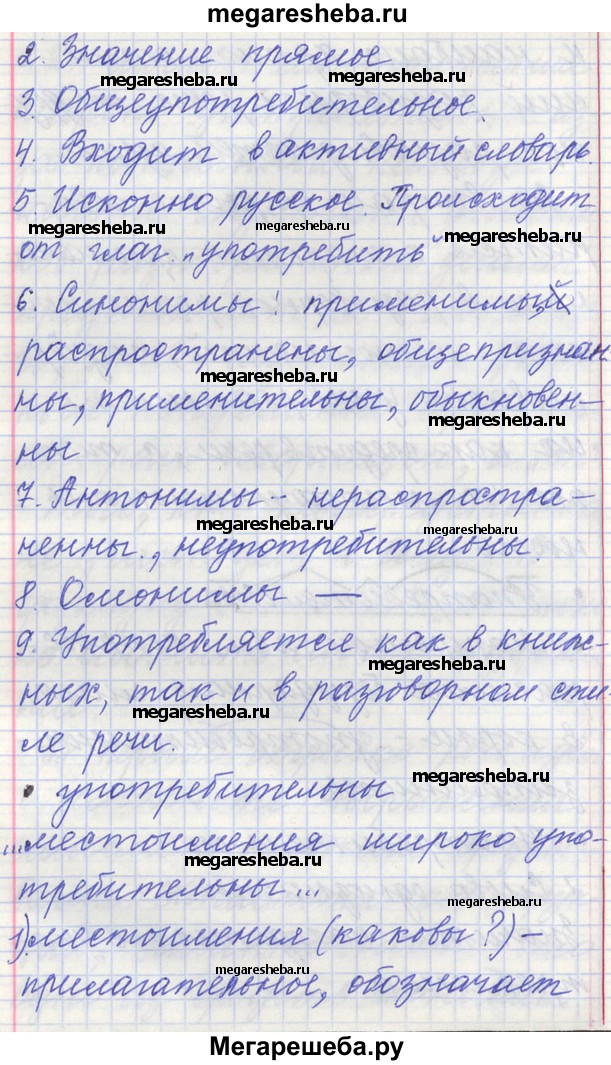 megaresheba.ru
2. Значение прямое
megaresheba.ru megaresheba.ru
3. Общеупотребительное.
4. Входит в активный словарь.
megaresheba.ru megaresheba.ru
5. Исконно русское. Происходит
megaresheba.ru megaresheba.ru megaresheba.ru
от глаг. „употребить"
6. Синонимы: применимы,
распространены, общепризнан
megaresheba.ru
ны, применительны, обыкновен-
megaresheba.ru
ны
7. Антонимы - нераспростра-
megaresheba.ru megaresheba.ru
ненны., неупотребительны.
8. Омонимы —
9. Употребляется как в книж-
megaresheba.ru
ных, так и в разговорном сти-
megaresheba.ru
ле речи.
• употребительны
megaresheba.ru
...местоимения широко упо-
megaresheba.ru
требительны...
megaresheba.ru
1) местоимения (каковы?) -
megaresheba.ru
прилагательное, обозначает
Мегарешеба.ру